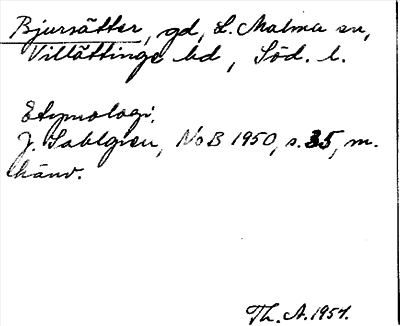 Bjursätter, gd, L. Malma sn,
Villåttinge hd, Söd. l.
Etymologi.
J. Sahlgren, NoB 1950, s. 35, m.
hänv.
Th. A. 1954.